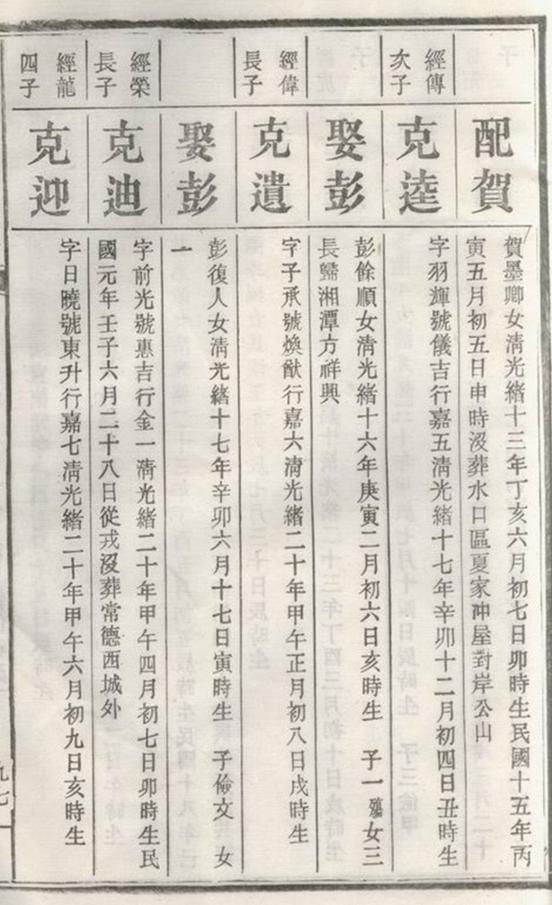 配賀
賀墨卿女清光緒十三年丁亥六月初七日卯時生民國十五年丙
寅五月初五日申時沒葬水口區夏家冲屋對岸公山
經傳
次子
克逵
字羽輝號儀吉行嘉五清光緒十七年辛卯十二月初四日丑時生
娶彭
彭餘順女清光緒十六年庚寅二月初六日亥時生 子一殤女三
長歸湘潭方祥興
經偉
長子
克遺
字子承號煥猷行嘉六清光緒二十年甲午正月初八日戌時生
娶彭
彭復人女清光緒十七年辛卯六月十七日寅時生 子儉文 女
一
經榮
長子
克迪
字前光號惠吉行金一清光緒二十年甲午四月初七日卯時生民
國元年壬子六月二十八日從戎沒葬常德西城外
經龍
四子
克迎
字日曉號東升行嘉七清光緒二十年甲午六月初九日亥時生
九七